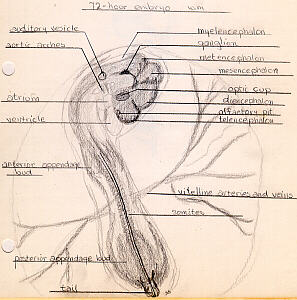 72-hour embryo wm
auditory vesicle
aortic arches
atrium
ventricle
anterior appendage
bud
posterior appendage bud
tail
myelencephalon
ganglion
metencephalon
mesencephalon
optic cup
diencephalon
olfactory pit
telencephalon
vitelline arteries and veins
somites